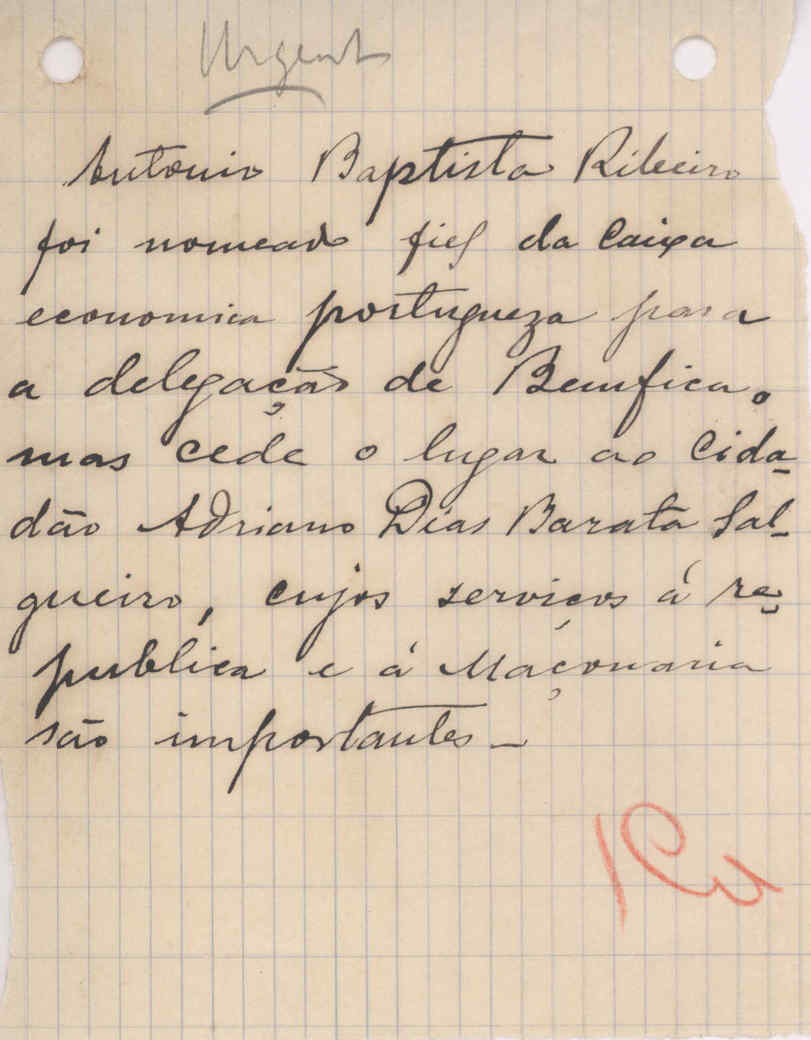 Urgent
Antonio Baptista Ribeiro
foi nomeado fiel da Caixa
economica portugueza para
a delegação de Bemfica.
mas cede o lugar ao Cida-
dão Adriano Dias Barata Sal-
gueiro, cujos serviços á re-
publica e á Maçonaria
são importantes -